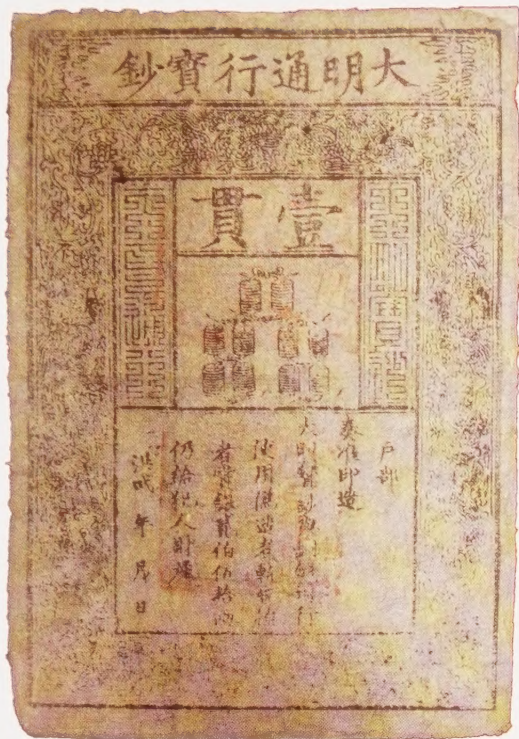 大明通行寶鈔
壹貫
戶部
奏准印造
大明寶鈔與銅錢通行
使用偽造者斬
者賞銀貳伯伍拾兩
仍給犯人財產
洪武 年 月 日